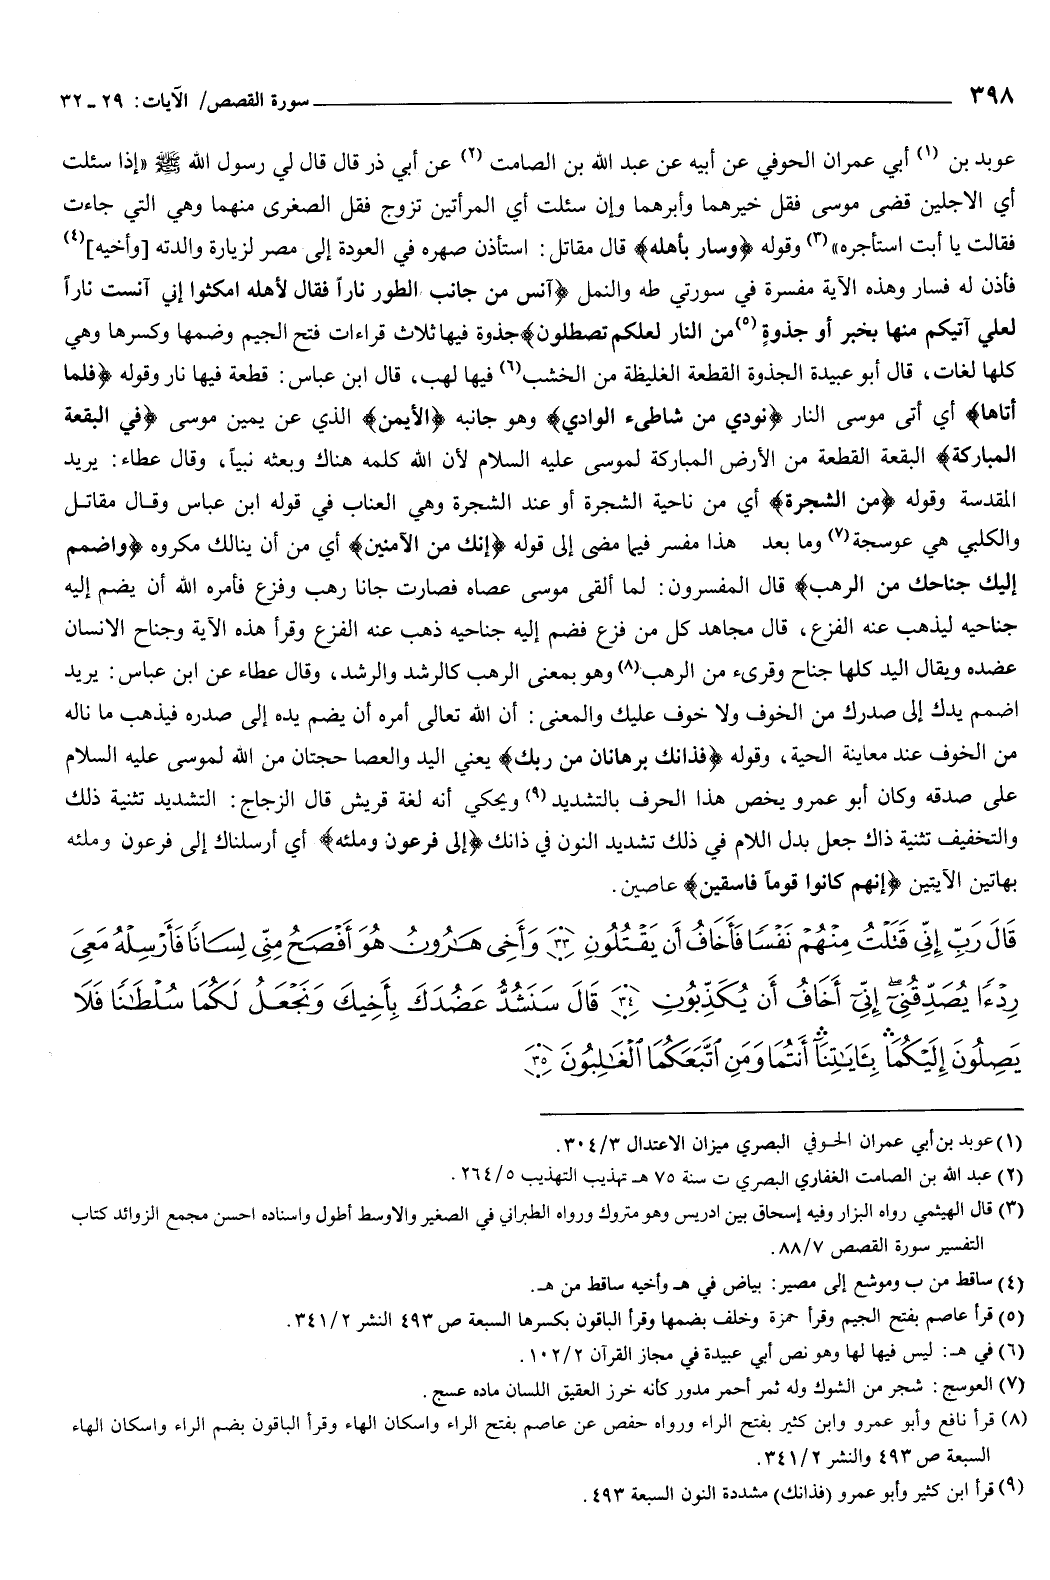 ٣٩٨ سورة القصص/ الآيات: ٢٩ ـ ٣٢
عوبد بن (١) أبي عمران الحوفي عن أبيه عن عبد الله بن الصامت (٢) عن أبي ذر قال قال لي رسول الله ﷺ «إذا سئلت
أي الاجلين قضى موسى فقل خيرهما وأبرهما وإن سئلت أي المرأتين تزوج فقل الصغرى منهما وهي التي جاءت
فقالت يا أبت استأجره» (٣) وقوله ﴿وسار بأهله﴾ قال مقاتل: استأذن صهره في العودة إلى مصر لزيارة والدته [وأخيه] (٤)
فأذن له فسار وهذه الآية مفسرة في سورتي طه والنمل ﴿آنس من جانب الطور ناراً فقال لأهله امكثوا إني آنست ناراً
لعلي آتيكم منها بخبر أو جذوةٍ (٥) من النار لعلكم تصطلون﴾ جذوة فيها ثلاث قراءات فتح الجيم وضمها وكسرها وهي
كلها لغات، قال أبو عبيدة الجذوة القطعة الغليظة من الخشب (٦) فيها لهب، قال ابن عباس: قطعة فيها نار وقوله ﴿فلما
أتاها﴾ أي أتى موسى النار ﴿نودي من شاطىء الوادي﴾ وهو جانبه ﴿الأيمن﴾ الذي عن يمين موسى ﴿في البقعة
المباركة﴾ البقعة القطعة من الأرض المباركة لموسى عليه السلام لأن الله كلمه هناك وبعثه نبياً، وقال عطاء: يريد
المقدسة وقوله ﴿من الشجرة﴾ أي من ناحية الشجرة أو عند الشجرة وهي العناب في قوله ابن عباس وقال مقاتل
والكلبي هي عوسجة (٧) وما بعد هذا مفسر فيما مضى إلى قوله ﴿إنك من الآمنين﴾ أي من أن ينالك مكروه ﴿واضمم
إليك جناحك من الرهب﴾ قال المفسرون: لما ألقى موسى عصاه فصارت جانا رهب وفزع فأمره الله أن يضم إليه
جناحيه ليذهب عنه الفزع، قال مجاهد كل من فزع فضم إليه جناحيه ذهب عنه الفزع وقرأ هذه الآية وجناح الانسان
عضده ويقال اليد كلها جناح وقرىء من الرهب (٨) وهو بمعنى الرهب كالرشد والرشد، وقال عطاء عن ابن عباس: يريد
اضمم يدك إلى صدرك من الخوف ولا خوف عليك والمعنى: أن الله تعالى أمره أن يضم يده إلى صدره فيذهب ما ناله
من الخوف عند معاينة الحية، وقوله ﴿فذانك برهانان من ربك﴾ يعني اليد والعصا حجتان من الله لموسى عليه السلام
على صدقه وكان أبو عمرو يخص هذا الحرف بالتشديد (٩) ويحكي أنه لغة قريش قال الزجاج: التشديد تثنية ذلك
والتخفيف تثنية ذاك جعل بدل اللام في ذلك تشديد النون في ذانك ﴿إلى فرعون وملئه﴾ أي أرسلناك إلى فرعون وملئه
بهاتين الآيتين ﴿إنهم كانوا قوماً فاسقين﴾ عاصين.
قَالَ رَبِّ إِنِّى قَتَلْتُ مِنْهُمْ نَفْسًا فَأَخَافُ أَن يَقْتُلُونِ ٣٣ وَأَخِى هَٰرُونُ هُوَ أَفْصَحُ مِنِّى لِسَانًا فَأَرْسِلْهُ مَعِىَ
رِدْءًا يُصَدِّقُنِىٓ ۖ إِنِّىٓ أَخَافُ أَن يُكَذِّبُونِ ٣٤ قَالَ سَنَشُدُّ عَضُدَكَ بِأَخِيكَ وَنَجْعَلُ لَكُمَا سُلْطَٰنًا فَلَا
يَصِلُونَ إِلَيْكُمَا ۛ بِـَٔايَٰتِنَآ ۛ أَنتُمَا وَمَنِ ٱتَّبَعَكُمَا ٱلْغَٰلِبُونَ ٣٥
(١) عوبد بن أبي عمران الحوفي البصري ميزان الاعتدال ٣٠٤/٣.
(٢) عبد الله بن الصامت الغفاري البصري ت سنة ٧٥ هـ تهذيب التهذيب ٢٦٤/٥.
(٣) قال الهيثمي رواه البزار وفيه إسحاق بين ادريس وهو متروك ورواه الطبراني في الصغير والاوسط أطول واسناده احسن مجمع الزوائد كتاب
التفسير سورة القصص ٨٨/٧.
(٤) ساقط من ب وموشع إلى مصير: بياض في هـ وأخيه ساقط من هـ.
(٥) قرأ عاصم بفتح الجيم وقرأ حمزة وخلف بضمها وقرأ الباقون بكسرها السبعة ص ٤٩٣ النشر ٣٤١/٢.
(٦) في هـ: ليس فيها لها وهو نص أبي عبيدة في مجاز القرآن ١٠٢/٢.
(٧) العوسج: شجر من الشوك وله ثمر أحمر مدور كأنه خرز العقيق اللسان ماده عسج.
(٨) قرأ نافع وأبو عمرو وابن كثير بفتح الراء ورواه حفص عن عاصم بفتح الراء واسكان الهاء وقرأ الباقون بضم الراء واسكان الهاء
السبعة ص ٤٩٣ والنشر ٣٤١/٢.
(٩) قرأ ابن كثير وأبو عمرو (فذانك) مشددة النون السبعة ٤٩٣.